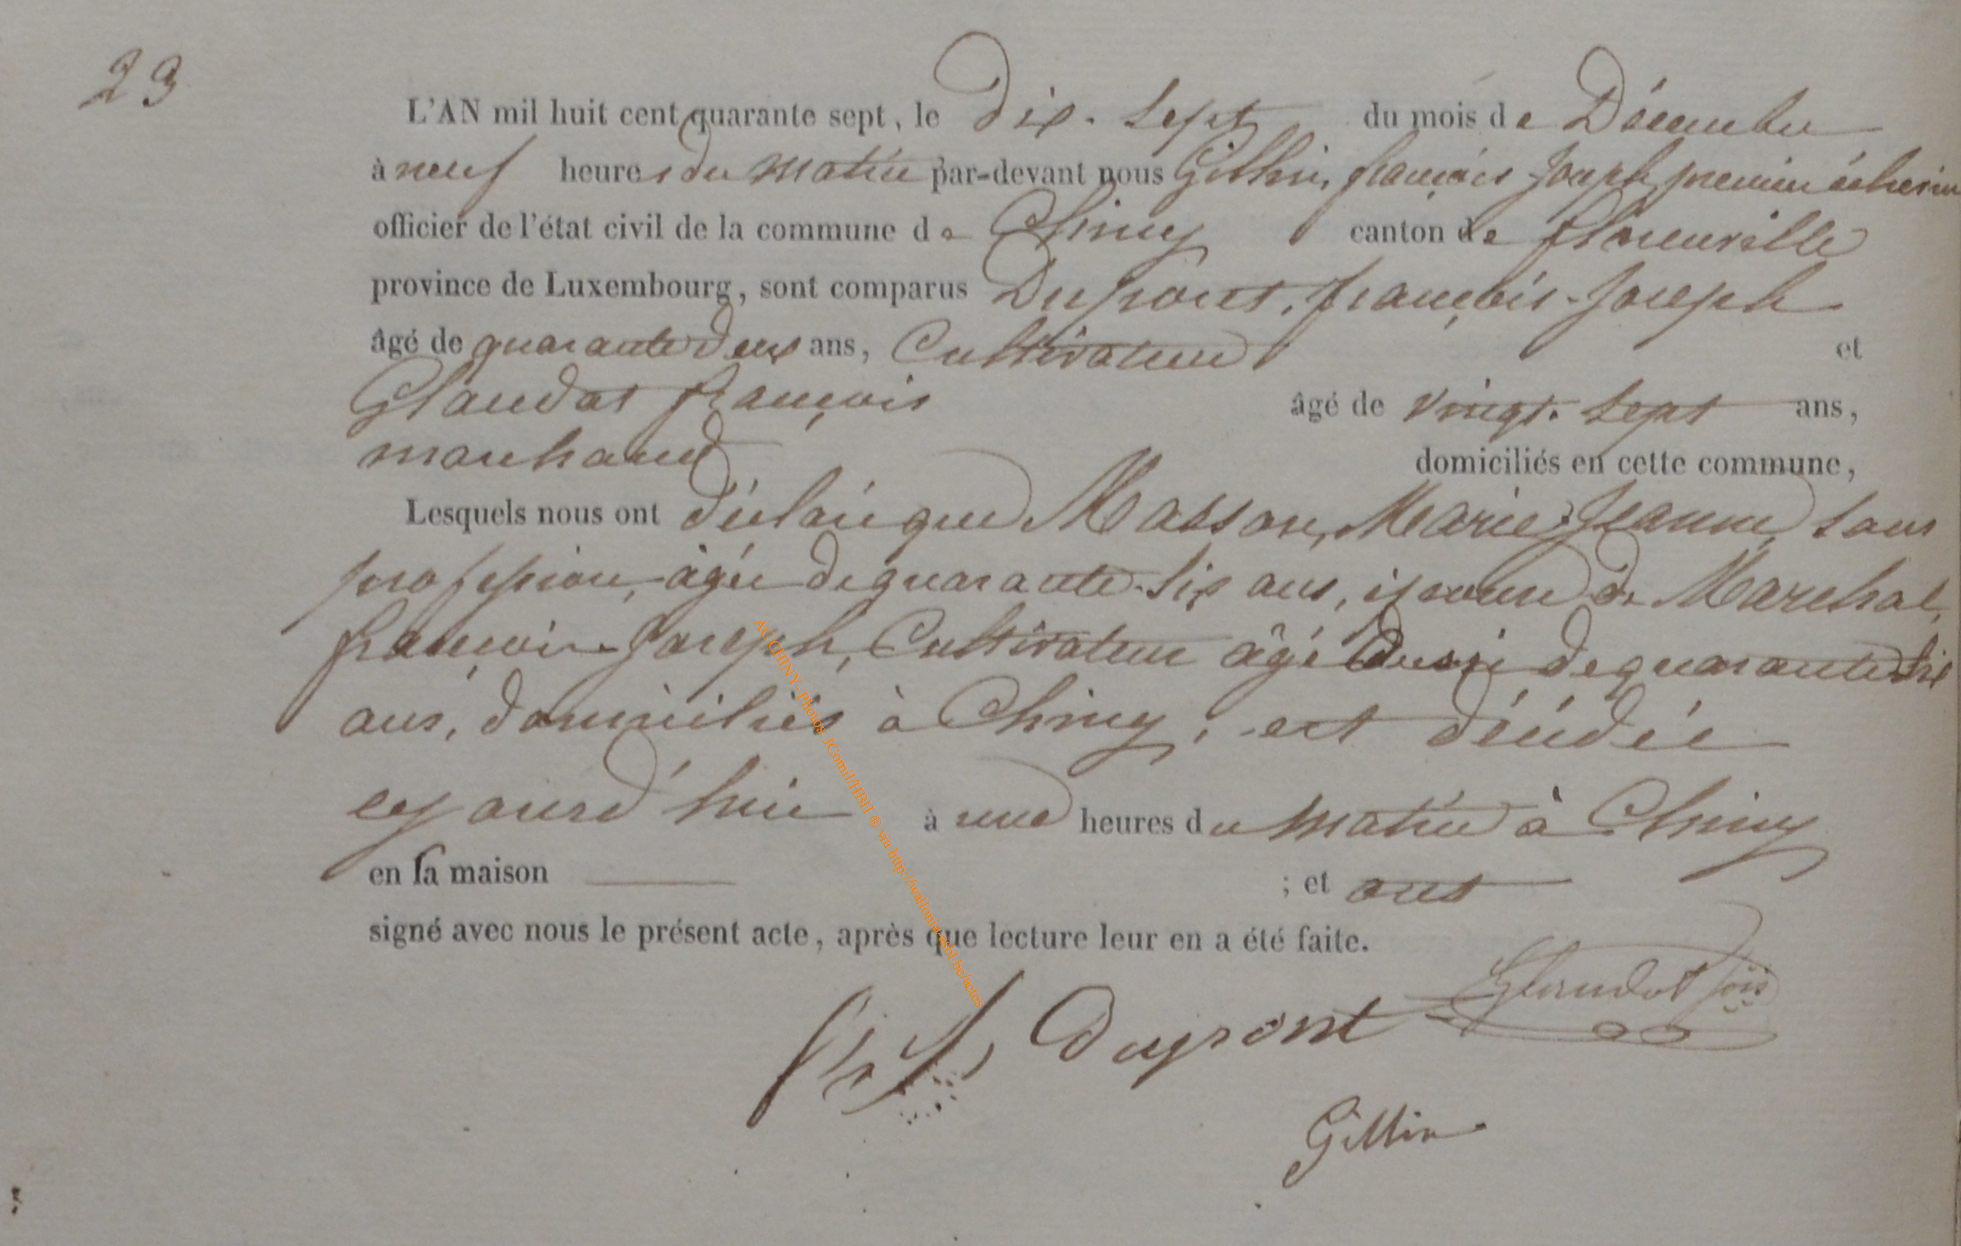 23
L'AN mil huit cent quarante sept, le dix-sept du mois de Décembre
à neuf heures du matin par-devant nous Gillin, françois Joseph premier échevin
officier de l'état civil de la commune de Chiny canton de florenville
province de Luxembourg, sont comparus Dupont, françois-Joseph
âgé de quarante deux ans, Cultivateur et
Glaudot françois âgé de vingt-sept ans,
marchand domiciliés en cette commune,
Lesquels nous ont déclaré que Masson, Marie-Jeanne, sans
profession, âgée de quarante-six ans, épouse de Marechal,
françois-Joseph, Cultivateur âgé aussi de quarante six
ans, domiciliés à Chiny, est décédée
cejourd'hui à une heures du matin à Chiny
en sa maison ; et ont
signé avec nous le présent acte, après que lecture leur en a été faite.
Dupont Glaudot fois
Gillin